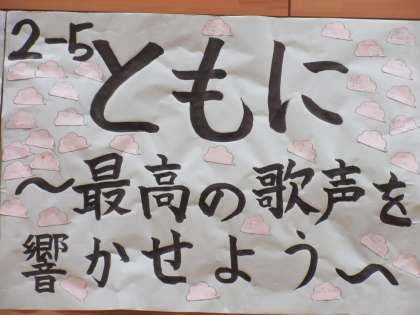 2-5
ともに
〜最高の歌声を
響かせよう〜